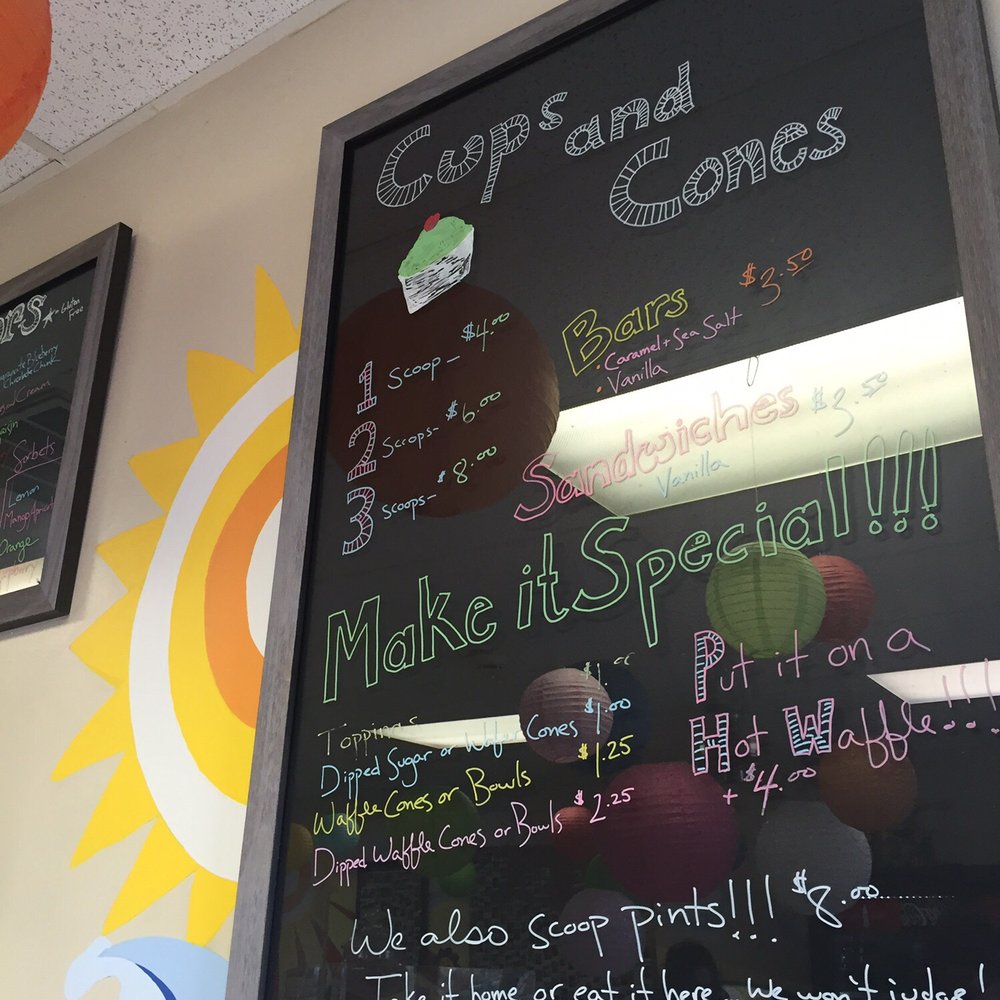 Cups and
Cones
1 Scoop - $4.00
2 Scoops - $6.00
3 Scoops - $8.00
Bars $3.50
• Caramel + Sea Salt
• Vanilla
Sandwiches $3.50
Vanilla
Make it Special!!!
Toppings $1.
Dipped Sugar or Wafer Cones $1.00
Waffle Cones or Bowls $1.25
Dipped Waffle Cones or Bowls $2.25
Put it on a
Hot Waffle!!!
+ $4.00
We also scoop pints!!! $8.00
Take it home or eat it here... We won't judge!
Gluten
Free
Blueberry
Chocolate Chunk
Cream
Sorbets
Lemon
Mango Apricot
Orange